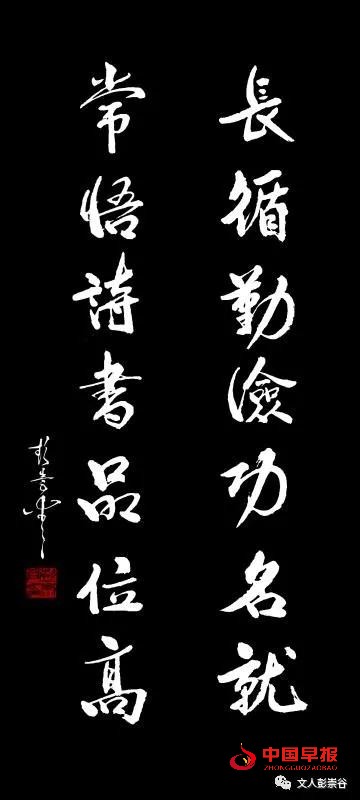 長循勤儉功名就
常悟詩書品位高
彭崇谷
中国早报
ZHONGGUOZAOBAO
文人彭崇谷